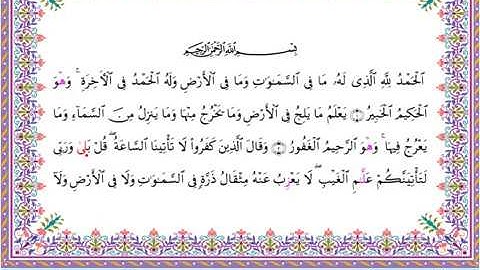 بِسْمِ ٱللَّهِ ٱلرَّحْمَٰنِ ٱلرَّحِيمِ
ٱلْحَمْدُ لِلَّهِ ٱلَّذِى لَهُۥ مَا فِى ٱلسَّمَٰوَٰتِ وَمَا فِى ٱلْأَرْضِ وَلَهُ ٱلْحَمْدُ فِى ٱلْءَاخِرَةِ ۚ وَهُوَ
ٱلْحَكِيمُ ٱلْخَبِيرُ ۝ يَعْلَمُ مَا يَلِجُ فِى ٱلْأَرْضِ وَمَا يَخْرُجُ مِنْهَا وَمَا يَنزِلُ مِنَ ٱلسَّمَآءِ وَمَا
يَعْرُجُ فِيهَا ۚ وَهُوَ ٱلرَّحِيمُ ٱلْغَفُورُ ۝ وَقَالَ ٱلَّذِينَ كَفَرُوا۟ لَا تَأْتِينَا ٱلسَّاعَةُ ۖ قُلْ بَلَىٰ وَرَبِّى
لَتَأْتِيَنَّكُمْ عَٰلِمِ ٱلْغَيْبِ ۖ لَا يَعْزُبُ عَنْهُ مِثْقَالُ ذَرَّةٍ فِى ٱلسَّمَٰوَٰتِ وَلَا فِى ٱلْأَرْضِ وَلَآ